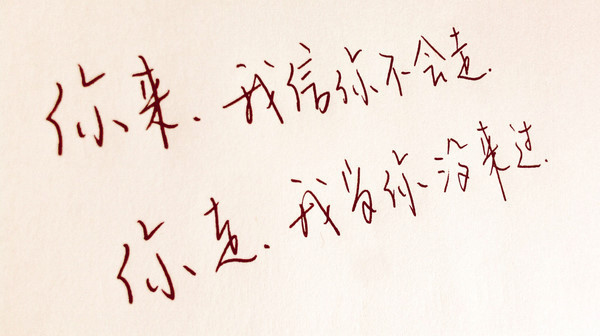 你来、我信你不会走.
你走、我当你没来过.